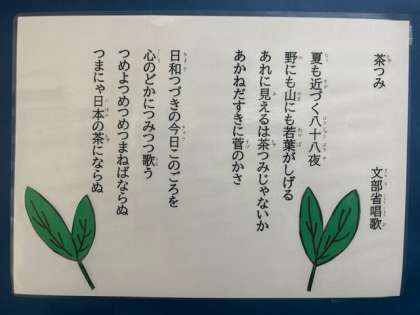 茶つみ
文部省唱歌
夏も近づく八十八夜
野にも山にも若葉がしげる
あれに見えるは茶つみじゃないか
あかねだすきに菅のかさ
日和つづきの今日このごろを
心のどかにつみつつ歌う
つめよつめつめつまねばならぬ
つまにゃ日本の茶にならぬ